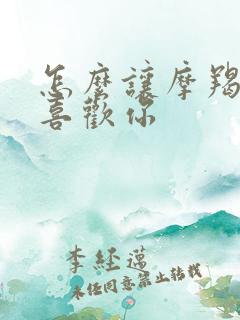 怎麼讓摩羯
喜歡你
李經邁
未經同意禁止轉載